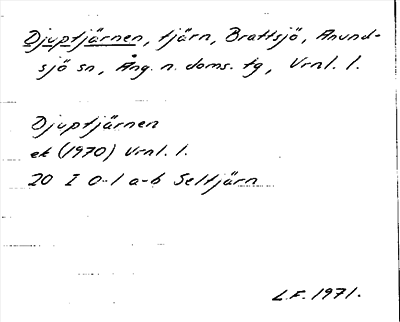 Djuptjärnen, tjärn, Brattsjö, Anund-
sjö sn, Ång. n. doms. tg, Vrnl. l.
Djuptjärnen
ek (1970) Vrnl. l.
20 I 0-1 a-b Seltjärn
L.F. 1971.